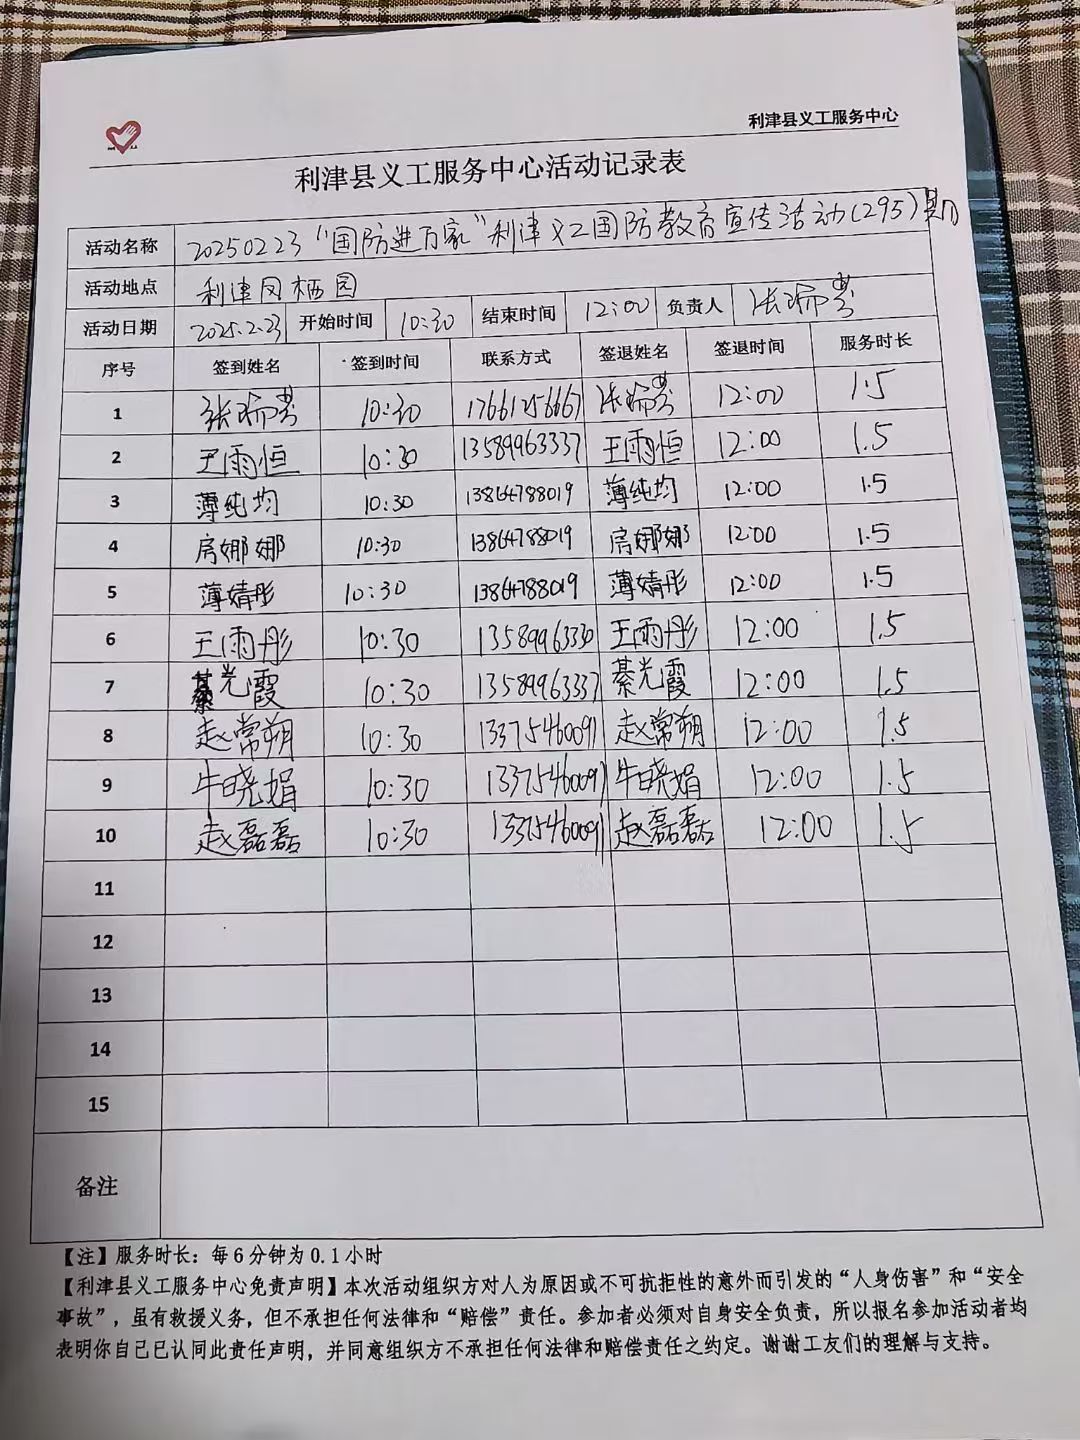 利津县义工服务中心
利津县义工服务中心活动记录表
活动名称 20250223“国防进万家”利津义工国防教育宣传活动(295)期
活动地点 利津凤栖园
活动日期 2025.2.23 开始时间 10:30 结束时间 12:00 负责人 张
序号 签到姓名 签到时间 联系方式 签退姓名 签退时间 服务时长
1 张 10:30 17661256667 张 12:00 1.5
2 王雨恒 10:30 13589963337 王雨恒 12:00 1.5
3 薄纯均 10:30 13864788019 薄纯均 12:00 1.5
4 房娜娜 10:30 13864788019 房娜娜 12:00 1.5
5 薄婧彤 10:30 13864788019 薄婧彤 12:00 1.5
6 王雨彤 10:30 13589963330 王雨彤 12:00 1.5
7 綦光霞 10:30 13589963337 綦光霞 12:00 1.5
8 赵常朔 10:30 13375460091 赵常朔 12:00 1.5
9 牛晓娟 10:30 13375460091 牛晓娟 12:00 1.5
10 赵磊磊 10:30 13375460091 赵磊磊 12:00 1.5
11
12
13
14
15
备注
【注】服务时长：每6分钟为0.1小时
【利津县义工服务中心免责声明】本次活动组织方对人为原因或不可抗拒性的意外而引发的“人身伤害”和“安全
事故”，虽有救援义务，但不承担任何法律和“赔偿”责任。参加者必须对自身安全负责，所以报名参加活动者均
表明你自己已认同此责任声明，并同意组织方不承担任何法律和赔偿责任之约定。谢谢工友们的理解与支持。